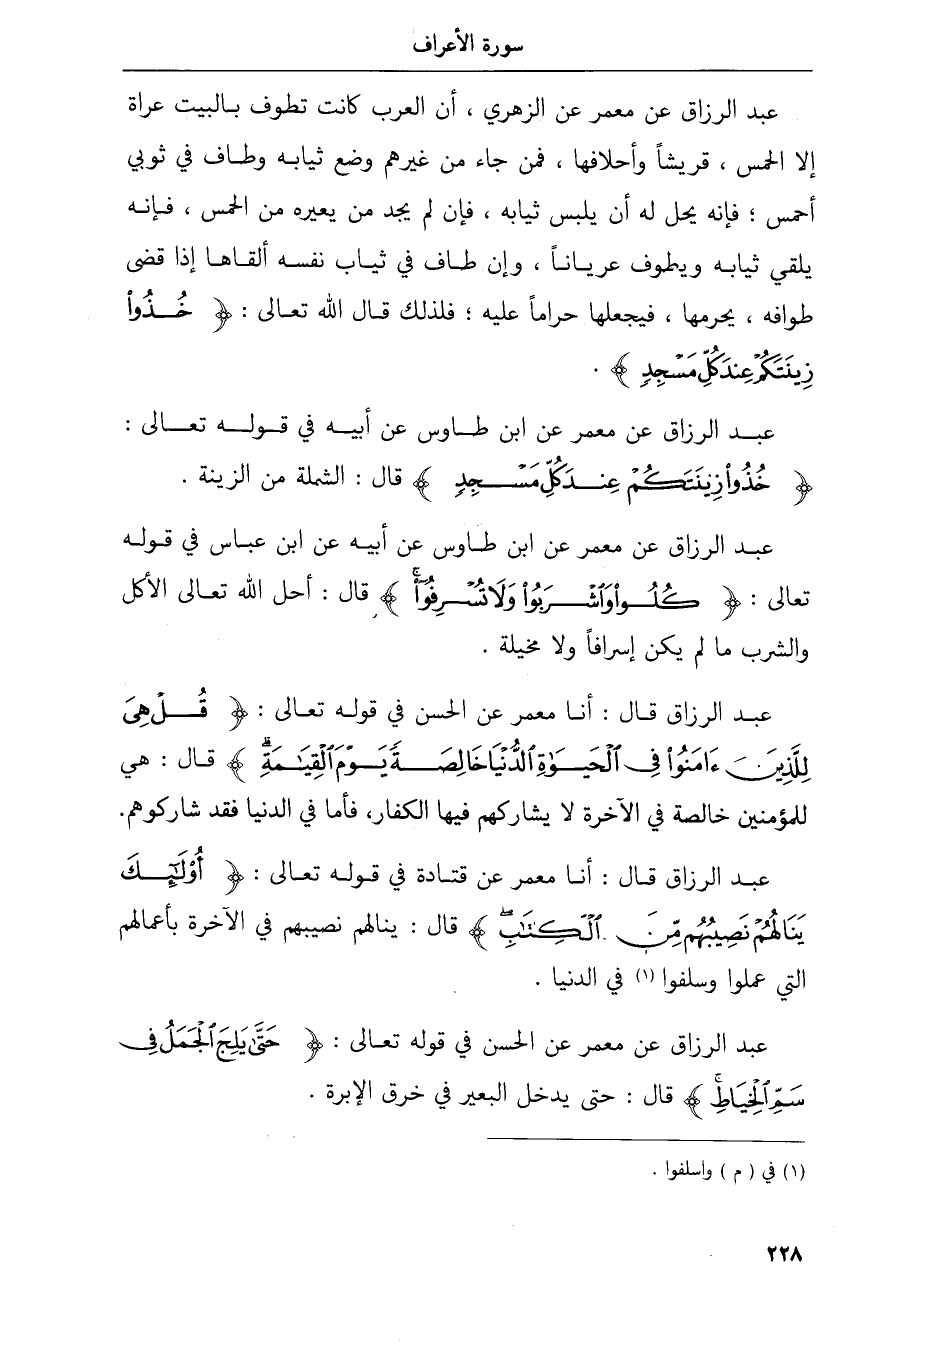 سورة الأعراف
عبد الرزاق عن معمر عن الزهري ، أن العرب كانت تطوف بالبيت عراة
إلا الحمس ، قريشاً وأحلافها ، فمن جاء من غيرهم وضع ثيابه وطاف في ثوبي
أحمس ؛ فإنه يحل له أن يلبس ثيابه ، فإن لم يجد من يعيره من الحمس ، فإنه
يلقي ثيابه ويطوف عرياناً ، وإن طاف في ثياب نفسه ألقاها إذا قضى
طوافه ، يحرمها ، فيجعلها حراماً عليه ؛ فلذلك قال الله تعالى : ﴿ خُذُواْ
زِينَتَكُمْ عِندَ كُلِّ مَسْجِدٍ ﴾ .
عبد الرزاق عن معمر عن ابن طاوس عن أبيه في قوله تعالى :
﴿ خُذُواْ زِينَتَكُمْ عِندَ كُلِّ مَسْجِدٍ ﴾ قال : الشملة من الزينة .
عبد الرزاق عن معمر عن ابن طاوس عن أبيه عن ابن عباس في قوله
تعالى : ﴿ كُلُواْ وَٱشْرَبُواْ وَلَا تُسْرِفُوٓاْۚ ﴾ قال : أحل الله تعالى الأكل
والشرب ما لم يكن إسرافاً ولا مخيلة .
عبد الرزاق قال : أنا معمر عن الحسن في قوله تعالى : ﴿ قُلْ هِىَ
لِلَّذِينَ ءَامَنُواْ فِى ٱلْحَيَوٰةِ ٱلدُّنْيَا خَالِصَةً يَوْمَ ٱلْقِيَٰمَةِۗ ﴾ قال : هي
للمؤمنين خالصة في الآخرة لا يشاركهم فيها الكفار، فأما في الدنيا فقد شاركوهم.
عبد الرزاق قال : أنا معمر عن قتادة في قوله تعالى : ﴿ أُوْلَٰٓئِكَ
يَنَالُهُمْ نَصِيبُهُم مِّنَ ٱلْكِتَٰبِۖ ﴾ قال : ينالهم نصيبهم في الآخرة بأعمالهم
التي عملوا وسلفوا (١) في الدنيا .
عبد الرزاق عن معمر عن الحسن في قوله تعالى : ﴿ حَتَّىٰ يَلِجَ ٱلْجَمَلُ فِى
سَمِّ ٱلْخِيَاطِۚ ﴾ قال : حتى يدخل البعير في خرق الإبرة .
(١) في ( م ) واسلفوا .
٢٢٨